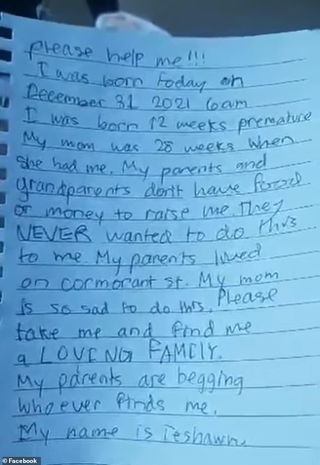 please help me!!!
I was born today on
December 31 2021 6am
I was born 12 weeks premature
My mom was 28 weeks when
she had me. My parents and
grandparents don't have food
or money to raise me. They
NEVER wanted to do this
to me. My parents lived
on cormorant st. My mom
is so sad to do this. Please
take me and find me
a LOVING FAMILY.
My parents are begging
whoever finds me.
My name is Teshawn
© Facebook